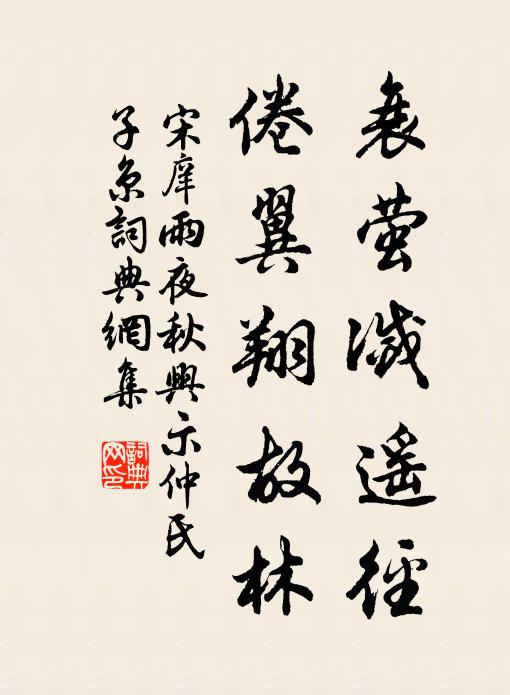 衰萤滅遥徑
倦翼翔故林
宋庠雨夜秋興示仲氏
子京詞典網集
詞典网印